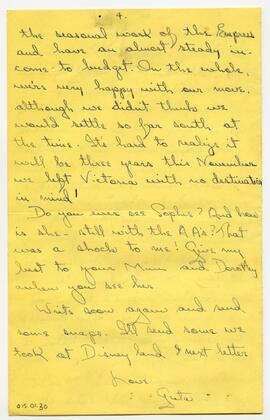 4.
the seasonal work of the Empress
and have an almost steady in-
come to budget. On the whole,
we're very happy with our move,
although we didn't think we
would settle so far south at
the time. It's hard to realize it
will be three years this November
we left Victoria with no destination
in mind!
Do you ever see Sophie? And how
is she - still with the A A's? That
was a shock to me! Give my
best to your Mum and Dorothy
when you see her
Write soon again and send
some snaps. I'll send some we
took at Disneyland, next letter
Love
Greta
015.01.30